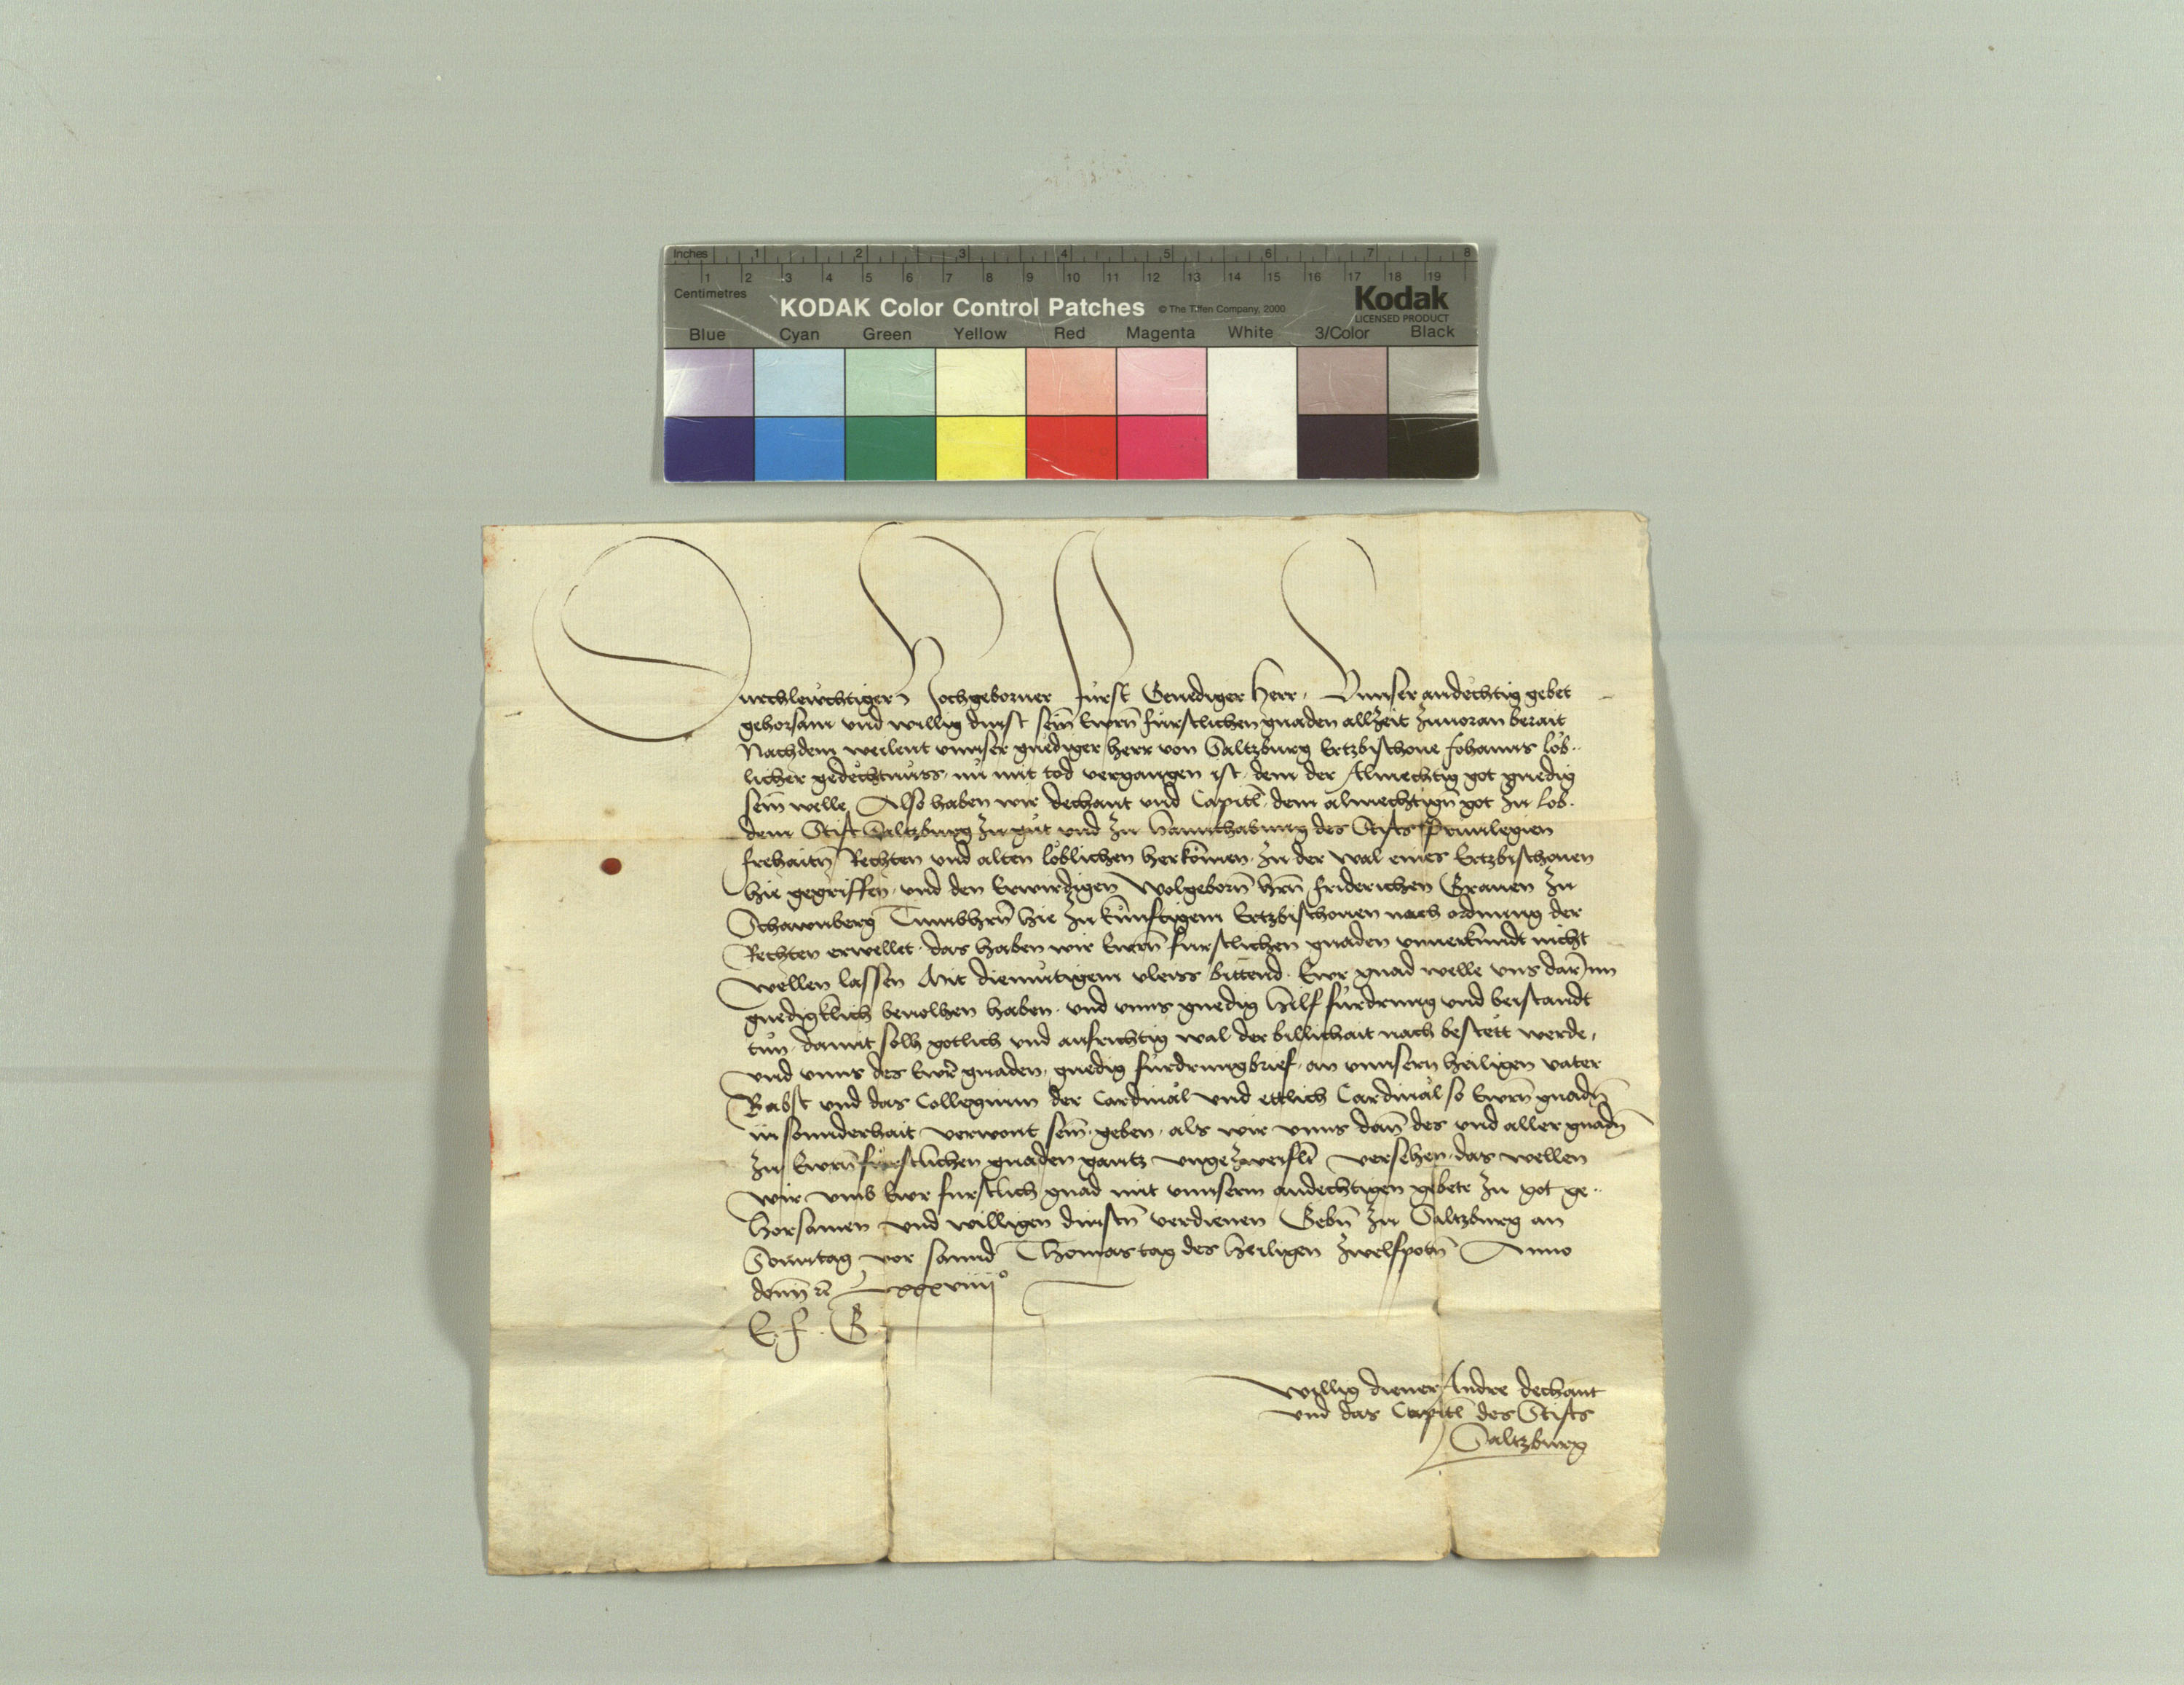 Inches 1 2 3 4 5 6 7 8
1 2 3 4 5 6 7 8 9 10 11 12 13 14 15 16 17 18 19
Centimetres
KODAK Color Control Patches © The Tiffen Company, 2000 Kodak
LICENSED PRODUCT
Blue Cyan Green Yellow Red Magenta White 3/Color Black
Durchleuchtiger Hochgeborner Fürst Genediger Herr, Vnnser andechtig gebet
gehorsam vnd willig dinst sein Ewrn fürstlichen gnaden allzeit zuuoran berait
Nachdem weilent vnnser gnediger herr von Saltzburg Ertzbischoue Johanns löb..
licher gedechtnüss, nu mit tod vergangen ist, dem der Almechtig got gnedig
sein welle, Also haben wir dechant vnd Capitl, dem almechtign got zu lob.
dem Stift Saltzburg zu gut vnd zu hannthabung des Stifts Priuilegien
freihaitn Rechten vnd alten löblichen herkomen. zu der wal eines Ertzbischouen
hie gegriffen, vnd den Erwirdigen Wolgeborn hrn friderichen Grauen zu
Schawnberg Tumbhrn hie zu künftigem Ertzbischouen nach ordnung der
Rechten erwellet. das haben wir Ewrn furstlichen gnaden vnuerkundt nicht
wellen lassen Mit diemütigem vleiss bittend. Ewr gnad welle vns darinn
gnedigklich beuolhen haben. vnd vnns gnedig hilf fürdrung vnd beistandt
tun. damit solh gotlich vnd aufrichtig wal der billichait nach bestett werde,
vnd vnns des Ewr gnaden, gnedig fürdrungbrief, an vnnsern heiligen vater
Babst vnd das Collegium der Cardinäl vnd ettlich Cardinäl so Ewrn gnadn
in sonnderhait verwont sein. geben. als wir vnns dan des vnd aller gnadn
zu Ewrn fürstlichen gnaden gantz vngezweiflt versehen. das wellen
wir vmb Ewr furstlich gnad mit vnnserm andechtigen gebete zu got ge..
horsamen vnd willigen dinstn verdienen Gebn zu Saltzburg an
Sonntag vor sannd Thomas tag des heiligen zwelfpotn Anno
domini Lxxxviiii°
E. f. G
willig diener Andre dechant
vnd das Capitl des Stifts
Saltzburg